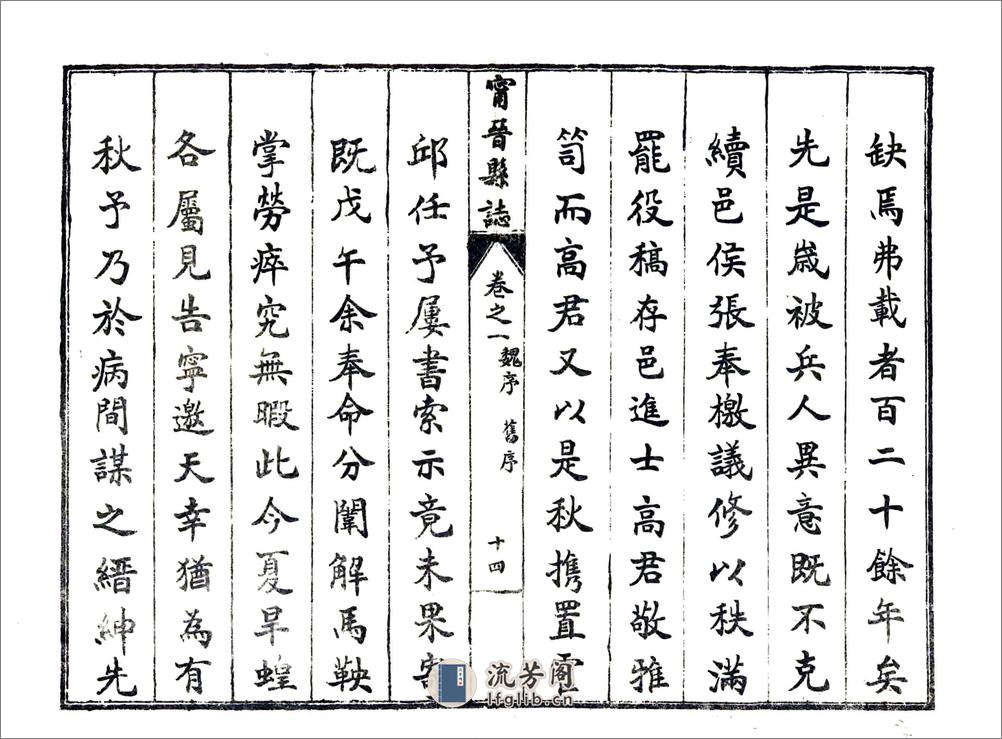 缺焉弗載者百二十餘年矣
先是歲被兵人異意既不克
續邑侯張奉檄議修以秩滿
罷役稿存邑進士高君敬雅
笥而高君又以是秋携置
甯晉縣誌
卷之一
魏序 舊序
十四
邱任予屢書索示竟未果
既戊午余奉命分闈解馬鞅
掌勞瘁究無暇此今夏旱蝗
各屬見告寧邀天幸猶為有
秋予乃於病間謀之縉紳先
流芳阁
lfglib.cn